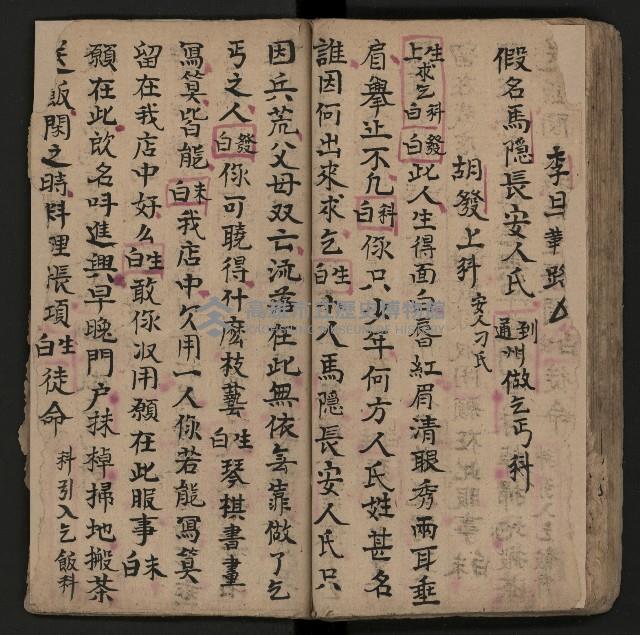 李旦華
假名馬隱長安人氏 到通州做乞丐科
胡發上科 安人刁氏
生上求乞科白 發白 此人生得面白唇紅眉清眼秀兩耳垂
肩舉止不凡 科白 你只年何方人氏姓甚名
誰因何出來求乞 生白 人馬隱長安人氏只
因兵荒父母双亡流落在此無依無靠做了乞
丐之人 發白 你可曉得什麽枝藝 生白 琴棋書畫
寫算皆能 末白 我店中欠用一人你若能寫算
留在我店中好么 生白 敢你收用願在此服事 末白
願在此改名呌進興早晚門户抹棹掃地搬茶
送飯閑之時料理賬項 生白 從命 科引入乞飯科
高雄市立歷史博物館
KAOHSIUNG MUSEUM OF HISTORY